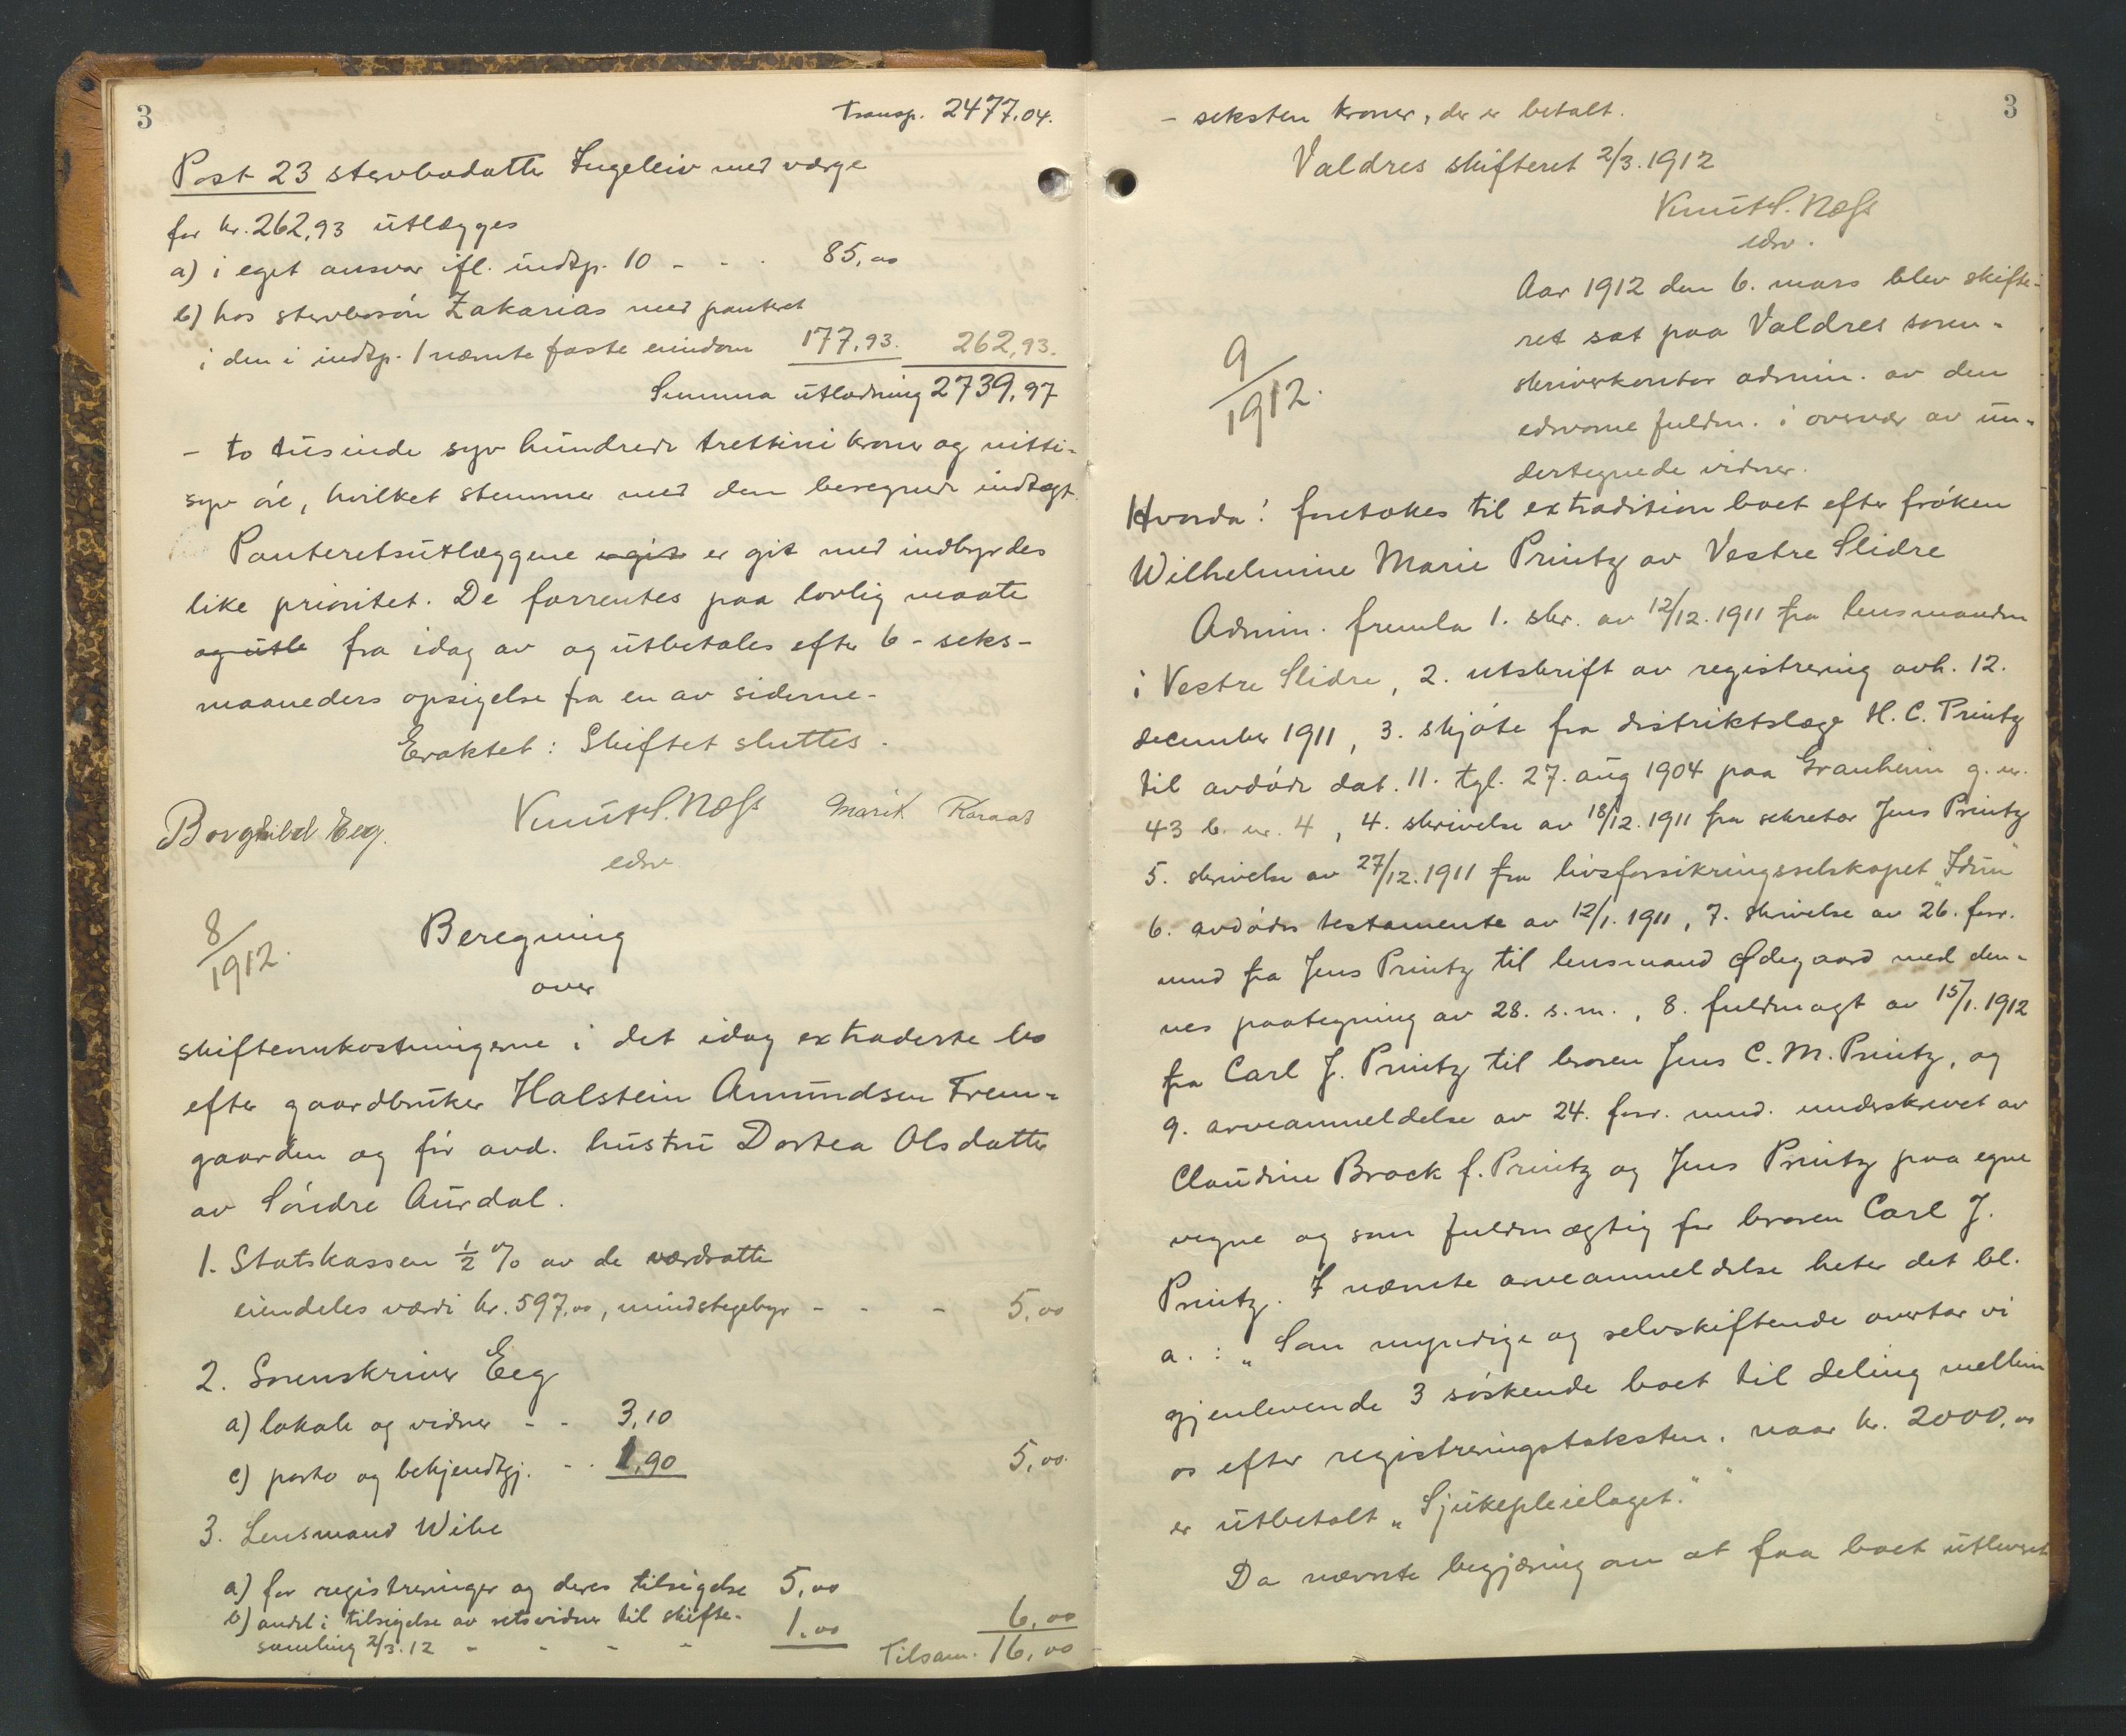 3
Transp. 2477.04.
Post 23 stervbodatter Ingeleiv med værge
for kr. 262,93 utlægges
a) i eget ansvar ifl. indtp. 10 - - - 85,00
b) hos stervbosøn Zakarias med panteret
i den i indtp. 1 nævnte faste eiendom 177,93. 262,93.
Summa utlodning 2739,97
- to tusinde syv hundrede trettini kroner og nitti-
syv øre, hvilket stemmer med den beregnede indtægt.
Panteretsutlæggene er git er git med indbyrdes
like prioritet. De forrentes paa lovlig maate
og utbe fra idag av og utbetales efter 6 - seks -
maaneders opsigelse fra en av siderne.
Eraktet: Skiftet sluttes.
Borghild Eeg. Knut S. Næss Marit
edsv
8/1912.
Beregning
over
skifteomkostningerne i det idag extraderte bo
efter gaardbruker Halstein Amundsen Frem-
gaarden og før avd. hustru Dortea Olsdatter
av Søndre Aurdal.
1. Statskassen ½ % av de værdsatte
eiendeles værdi kr. 597,00, mindstegebyr - - - 5,00
2. Sorenskriver Eeg
a) lokale og vidner - - 3,10
c) porto og bekjendtgj. - - 1,90 5,00.
3. Lensmand Wibe
a) for registreringer og deres tilsigelse 5,00
b) andel i tilsigelse av retsvidner til skifte-
samling 2/3.12 - - - - 1.00 6,00
Tilsam. 16,00
3
- seksten kroner, der er betalt.
Valdres skifteret 2/3.1912
Knut S. Næss
edsv.
9/1912.
Aar 1912 den 6. mars blev skifte-
ret sat paa Valdres soren-
skriverkontor admin. av den
edsvorne fuldm. i overvær av un-
dertegnede vidner.
Hvorda: foretokes til extradition boet efter frøken
Wilhelmine Marie Printz av Vestre Slidre
Admin. fremla 1. skr. av 12/12.1911 fra lensmanden
i Vestre Slidre, 2. utskrift av registrering avh. 12.
december 1911, 3. skjøte fra distriktslæge H. C. Printz
til avdøde dat. 11. tgl. 27. aug 1904 paa Granheim g. nr.
43 b. nr. 4, 4. skrivelse av 18/12.1911 fra sekretær Jens Printz
5. skrivelse av 27/12.1911 fra livsforsikringsselskapet „Idun"
6. avdødes testamente av 12/1.1911, 7. skrivelse av 26. forr.
mnd fra Jens Printz til lensmand Ødegaard med den-
nes paategning av 28. s.m., 8. fuldmagt av 15/1.1912
fra Carl J. Printz til broren Jens C. M. Printz, og
9. arveanmeldelse av 24. forr. mnd. underskrevet av
Claudine Brock f. Printz og Jens Printz paa egne
vegne og som fuldmægtig for broren Carl J.
Printz. I nævnte arveanmeldelse heter det bl.
a. : „Som myndige og selvskiftende overtar vi
gjenlevende 3 søskende boet til deling mellem
os efter registreringstaksten, naar kr. 2000,00
er utbetalt „Sjukepleielaget.""
Da nævnte begjæring om at faa boet utleveret